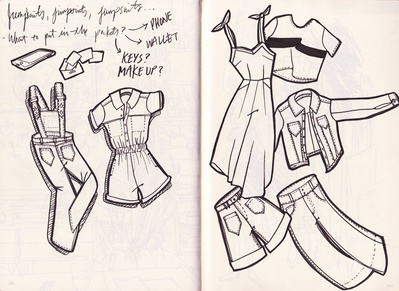 jumpsuits, jumpsuits, jumpsuits...
- What to put in the pockets? → PHONE
WALLET
KEYS?
MAKEUP?